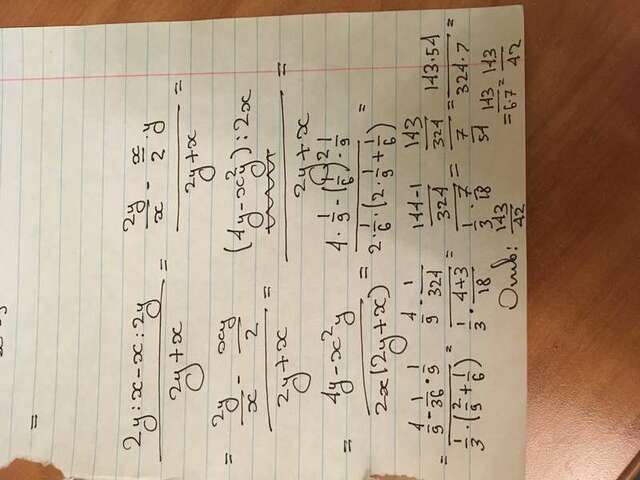 =
(2y : x - x : 2y)/(2y + x) = (2y/x - x/2 · y)/(2y + x) =
= (2y/x - xy/2)/(2y + x) = ((4y - x²y) : 2x)/(2y + x) =
= (4y - x²y)/(2x(2y + x)) = (4 · 1/9 - (1/6)² · 1/9)/(2 · 1/6 · (2 · 1/9 + 1/6)) =
= (4/9 - 1/36 · 1/9)/(1/3 · (2/9 + 1/6)) = (4/9 - 1/324)/(1/3 · (4+3)/18) = ((144-1)/324)/(1/3 · 7/18) = (143/324)/(7/54) = (143 · 54)/(324 · 7) =
= 143/6·7 = 143/42
Отв: 143/42